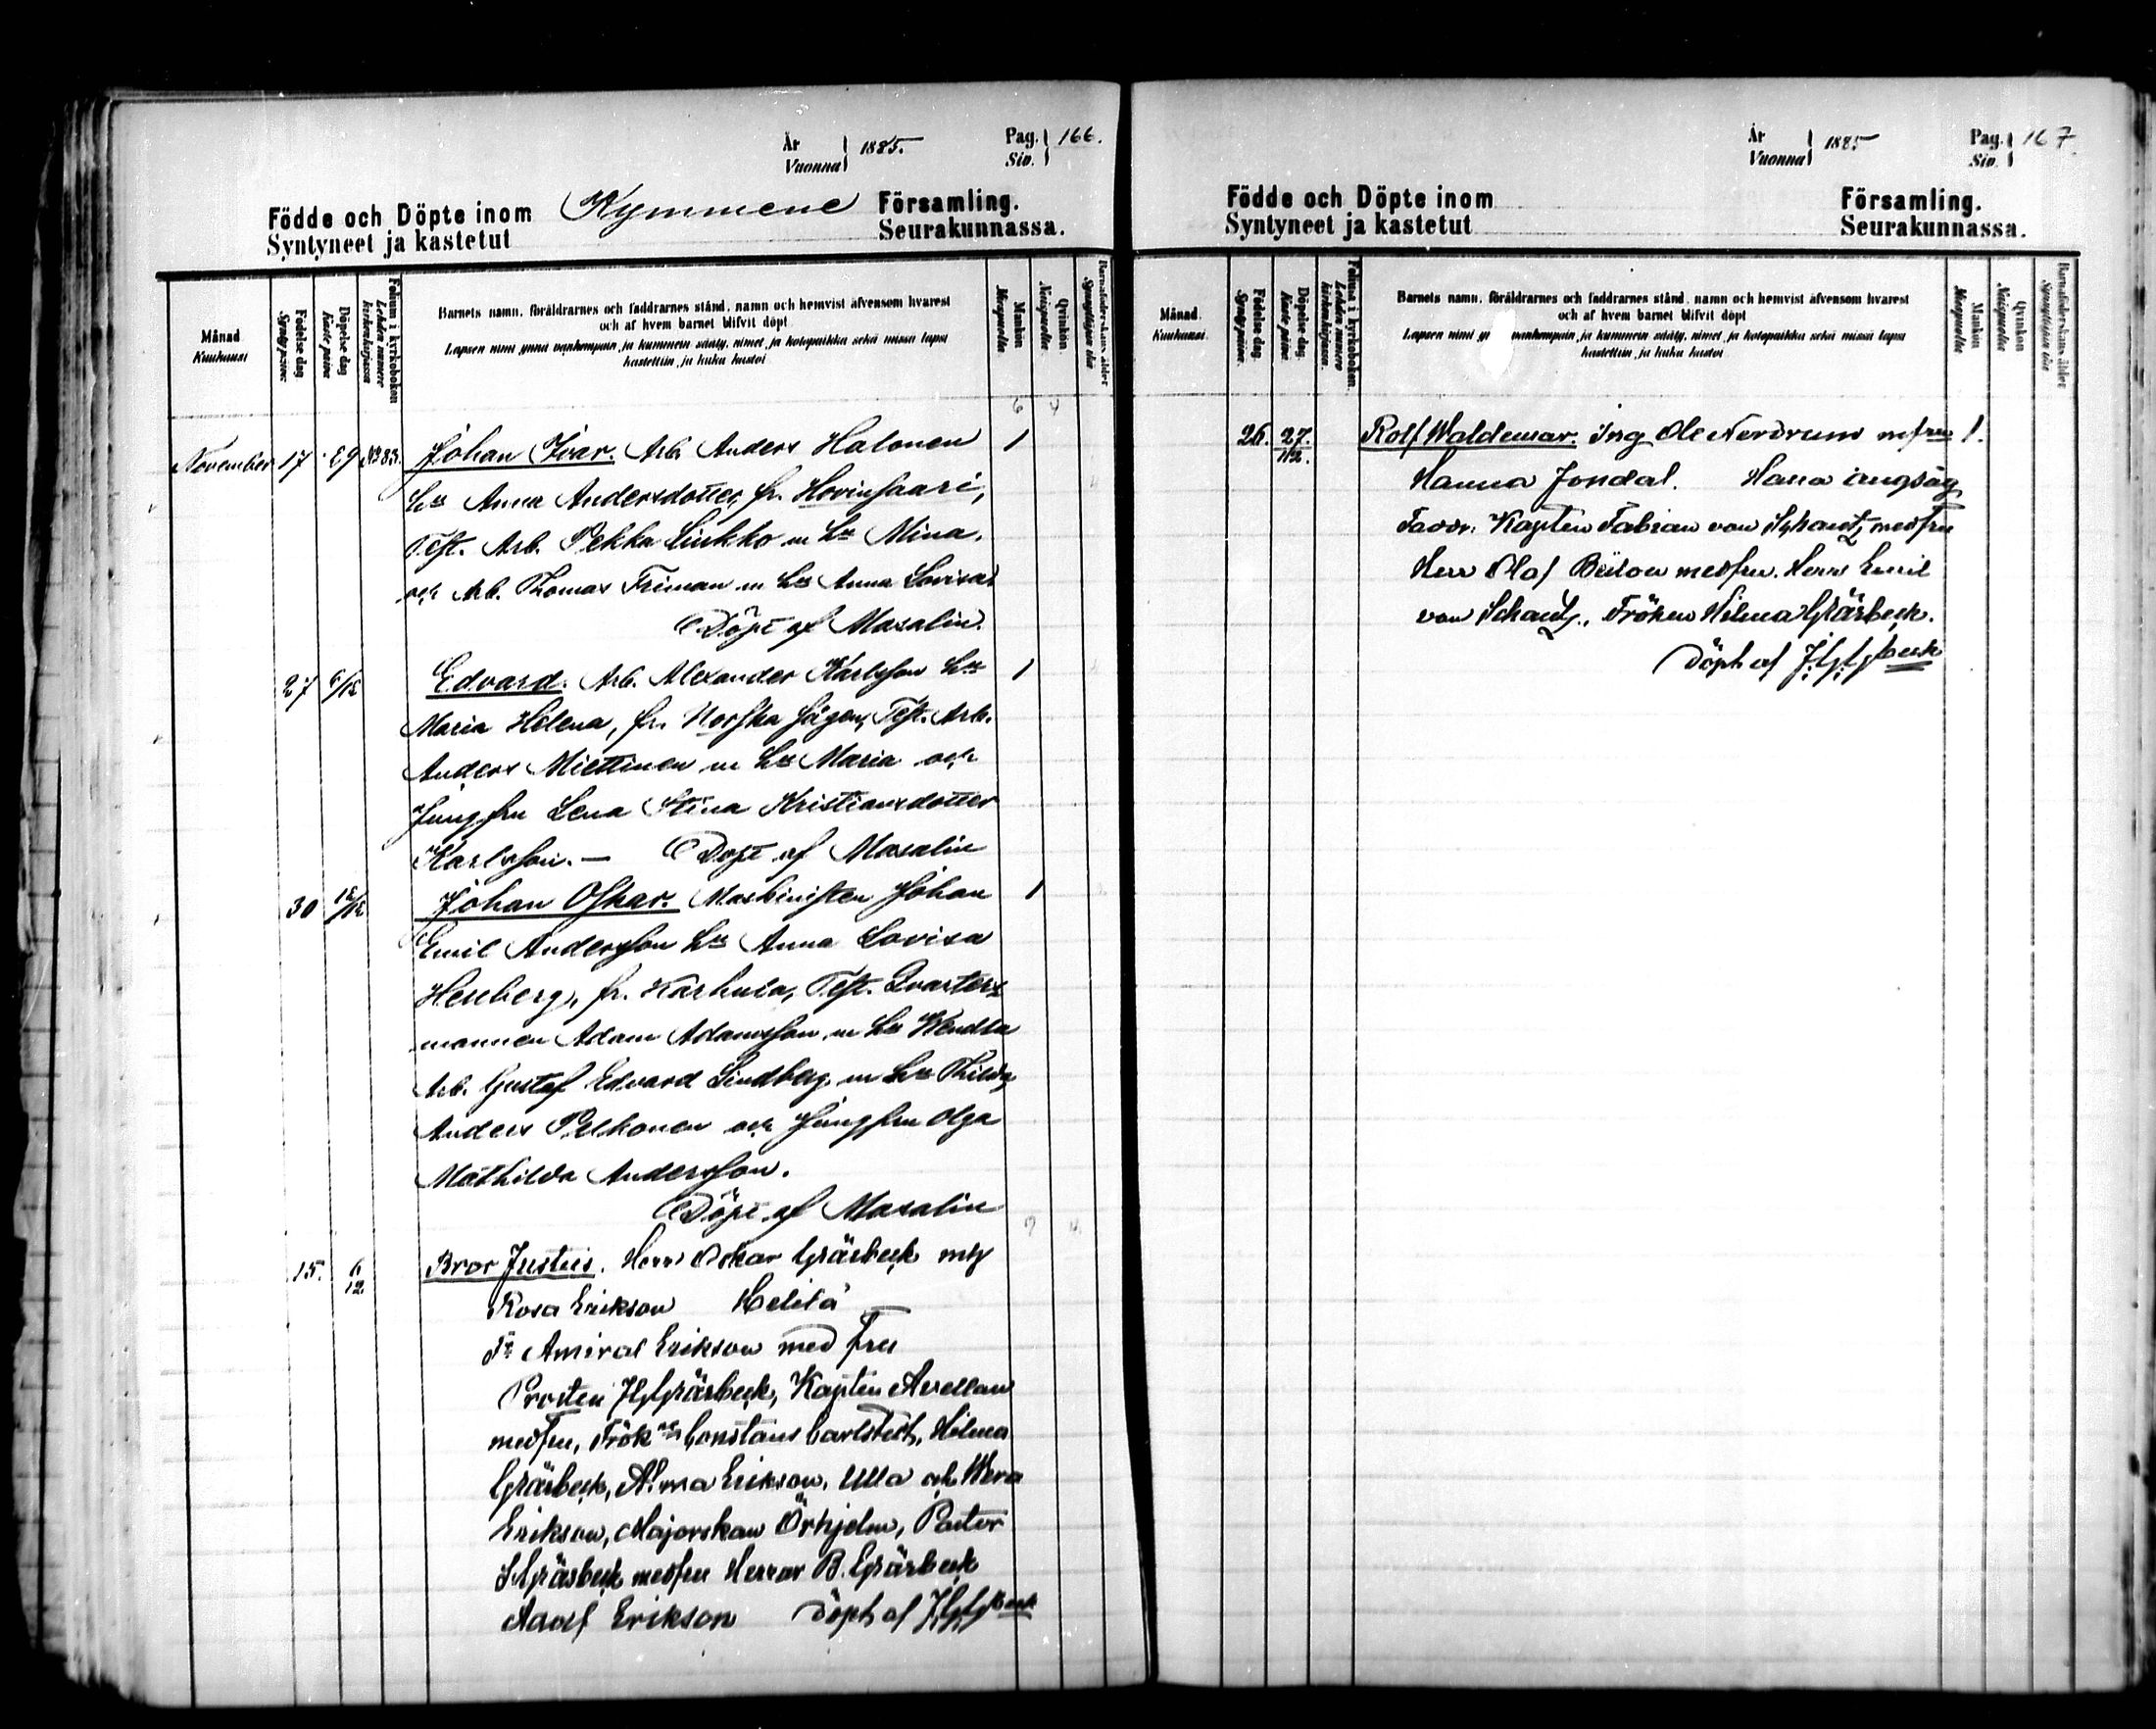 År
Vuonna
1885.
Pag.
Siv.
166.
Födde och Döpte inom Kymmene Församling.
Syntyneet ja kastetut Seurakunnassa.
Månad
Kuukausi
Födelse dag
Syntypäivä
Döpelse dag
Kaste päivä
Folium i kyrkoboken
Lehden numero kirkonkirjassa
Barnets namn, föräldrarnes och faddrarnes stånd, namn och hemvist äfvensom hvarest
och af hvem barnet blifvit döpt
Lapsen nimi ynnä vanhempain, ja kummein sääty, nimet, ja kotopaikka sekä missä lapsi
kastettiin, ja kuka kastoi
Mankön
Miespuolta
Qvinkön
Naispuolta
Barnaföderskans ålder
Synnyttäjän ikä
6 4
November 17 29 № 83. Johan Ivar. Arb. Anders Halonen 1
hu Anna Andersdotter, fr. Hovinsaari,
Test. Arb. Pekka Sinkko m hu Mina,
och Arb. Thomas Friman m hu Anna Lovisa
Döpt af Masalin.
27 6/12 Edvard. Arb. Alexander Karlsson hu 1
Maria Helena, fr. Norska sågen, Test. Arb.
Anders Miettinen m hu Maria och
Jungfru Lena Stina Kristiansdotter
Karlsson. — Döpt af Masalin
30 12/12 Johan Oskar. Maskinisten Johan 1
Emil Andersson hu Anna Lovisa
fr. Karhula, Test. Qvarters
mannen Adam Adamsson m hu Wendla
Arb. Gustaf Edvard Lindberg m hu Thilda,
Anders Pelkonen och Jungfru Olga
Mathilda Andersson.
Döpt af Masalin
7 4
15. 6/12 Bror Justus. Herr Oskar Gräsbeck
Rosa Erikson Helilä
Amiral Erikson med fru
Prosten Gräsbeck, Kapten Avellan
medfru, Frökna Constans Carlstedt, Hilma
Gräsbeck, Alma Erikson, Ulla och Wera
Erikson, Majorskan Örhjelm, Pastor
Gräsbeck medfru Herrar B. Gräsbeck
Adolf Erikson Döpt af
År
Vuonna
1885
Pag.
Siv.
167.
Födde och Döpte inom Församling.
Syntyneet ja kastetut Seurakunnassa.
Månad.
Kuukausi.
Födelse dag.
Syntypäivä.
Döpelse dag.
Kaste päivä.
Folium i kyrkoboken.
Lehden numero kirkonkirjassa.
Barnets namn, föräldrarnes och faddrarnes stånd, namn och hemvist äfvensom hvarest
och af hvem barnet blifvit döpt
Lapsen nimi vanhempain, ja kummein sääty, nimet, ja kotopaikka sekä missä lapsi
kastettiin, ja kuka kastoi
Mankön
Miespuolta
Qvinkön
Naispuolta
Barnaföderskans ålder
Synnyttäjän ikä
26. 27/12. Rolf Waldemar. Ing Ole Nerdrum mfru 1.
Hanna Jondal. Halla ångsåg
Faddr. Kapten Fabian von Schantz medfru
Herr Olof Bülow medfru. Herr Emil
von Schantz, Fröken Hilma Gräsbeck.
Döpt af